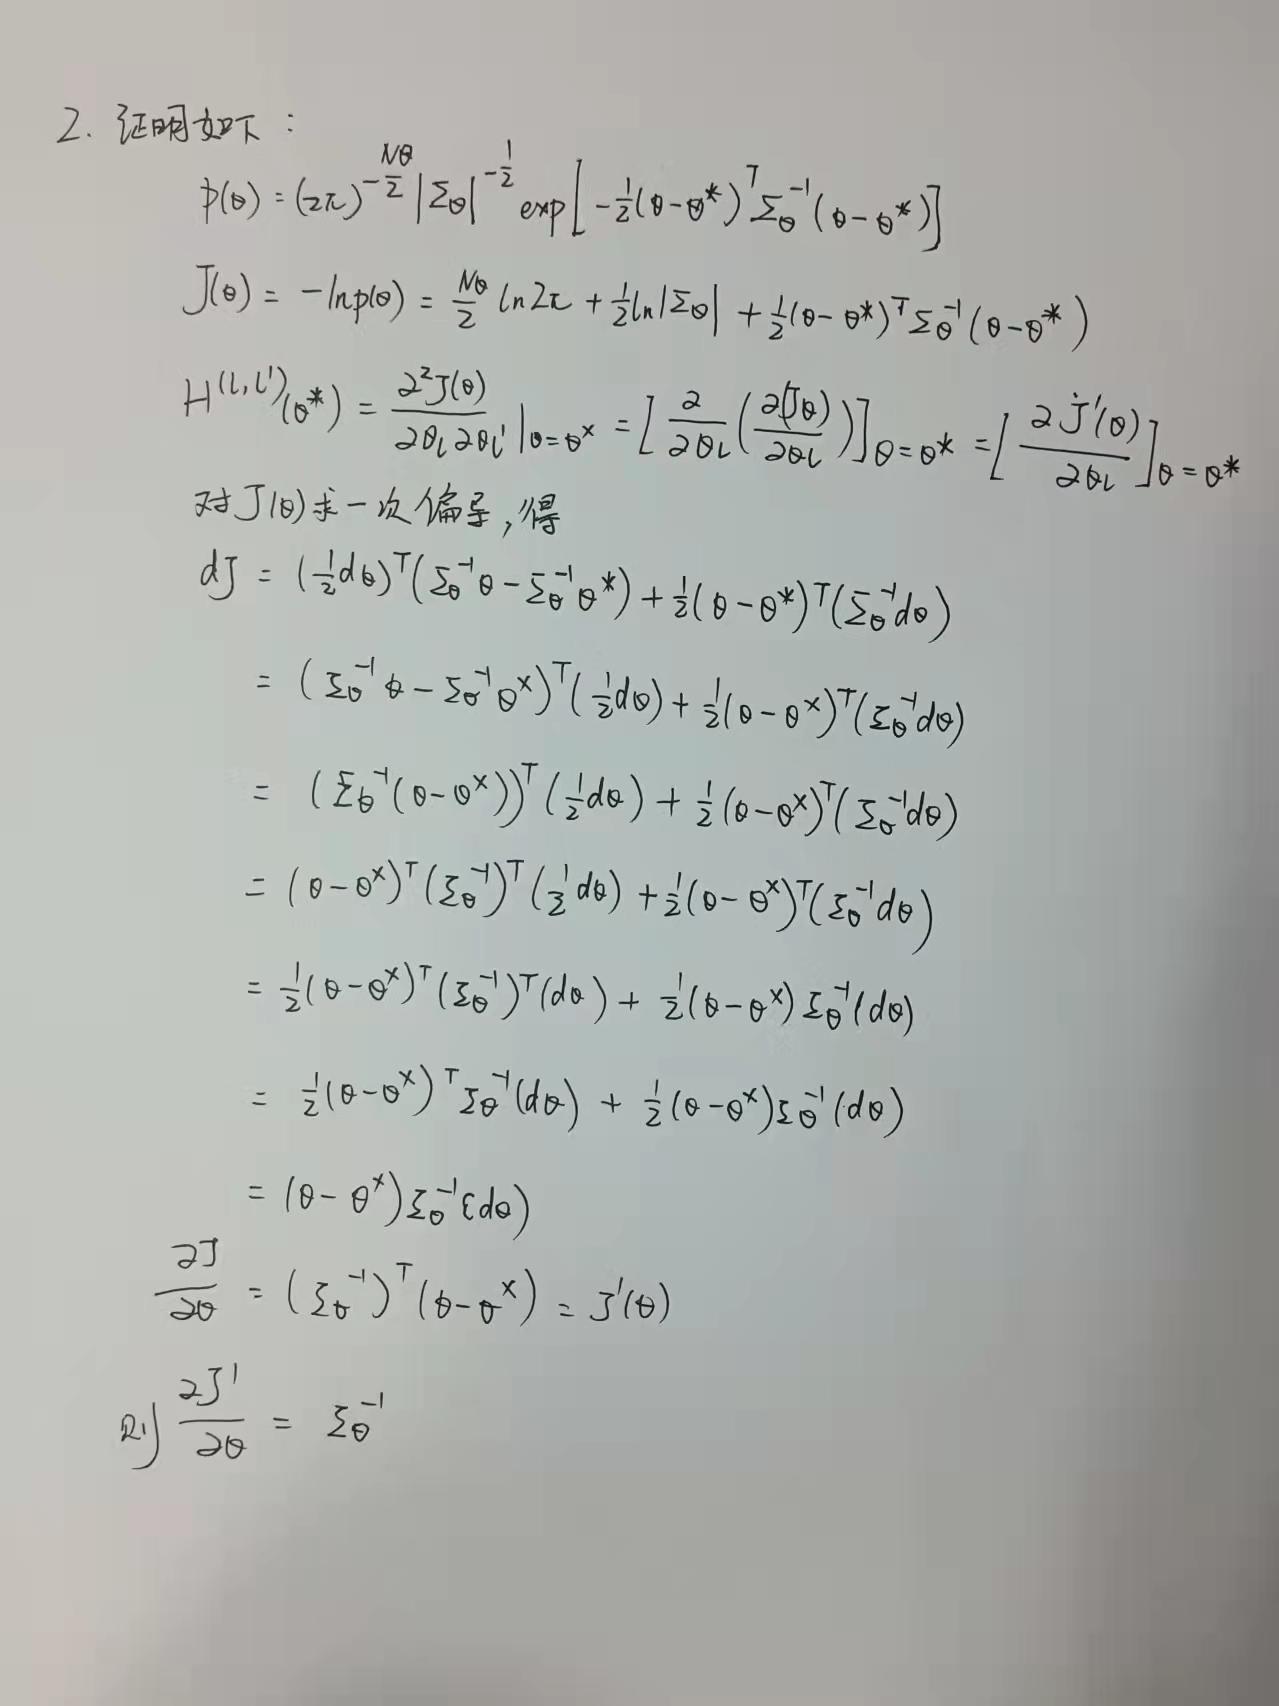 2. 证明如下:
p(θ) = (2π)^{-Nθ/2} |Σθ|^{-1/2} exp[-1/2(θ-θ*)^T Σθ^{-1}(θ-θ*)]
J(θ) = -lnp(θ) = Nθ/2 ln2π + 1/2 ln|Σθ| + 1/2(θ-θ*)^T Σθ^{-1}(θ-θ*)
H^{(l,l')}(θ*) = ∂²J(θ)/∂θl∂θl' |θ=θ* = [∂/∂θl (∂J(θ)/∂θl)]θ=θ* = [∂J'(θ)/∂θl]θ=θ*
对J(θ)求一次偏导,得
dJ = (1/2 dθ)^T(Σθ^{-1}θ - Σθ^{-1}θ*) + 1/2(θ-θ*)^T(Σθ^{-1}dθ)
= (Σθ^{-1}θ - Σθ^{-1}θ*)^T(1/2 dθ) + 1/2(θ-θ*)^T(Σθ^{-1}dθ)
= (Σθ^{-1}(θ-θ*))^T(1/2 dθ) + 1/2(θ-θ*)^T(Σθ^{-1}dθ)
= (θ-θ*)^T(Σθ^{-1})^T(1/2 dθ) + 1/2(θ-θ*)^T(Σθ^{-1}dθ)
= 1/2(θ-θ*)^T(Σθ^{-1})^T(dθ) + 1/2(θ-θ*)Σθ^{-1}(dθ)
= 1/2(θ-θ*)^T Σθ^{-1}(dθ) + 1/2(θ-θ*)Σθ^{-1}(dθ)
= (θ-θ*)Σθ^{-1}(dθ)
∂J/∂θ = (Σθ^{-1})^T(θ-θ*) = J'(θ)
则 ∂J'/∂θ = Σθ^{-1}